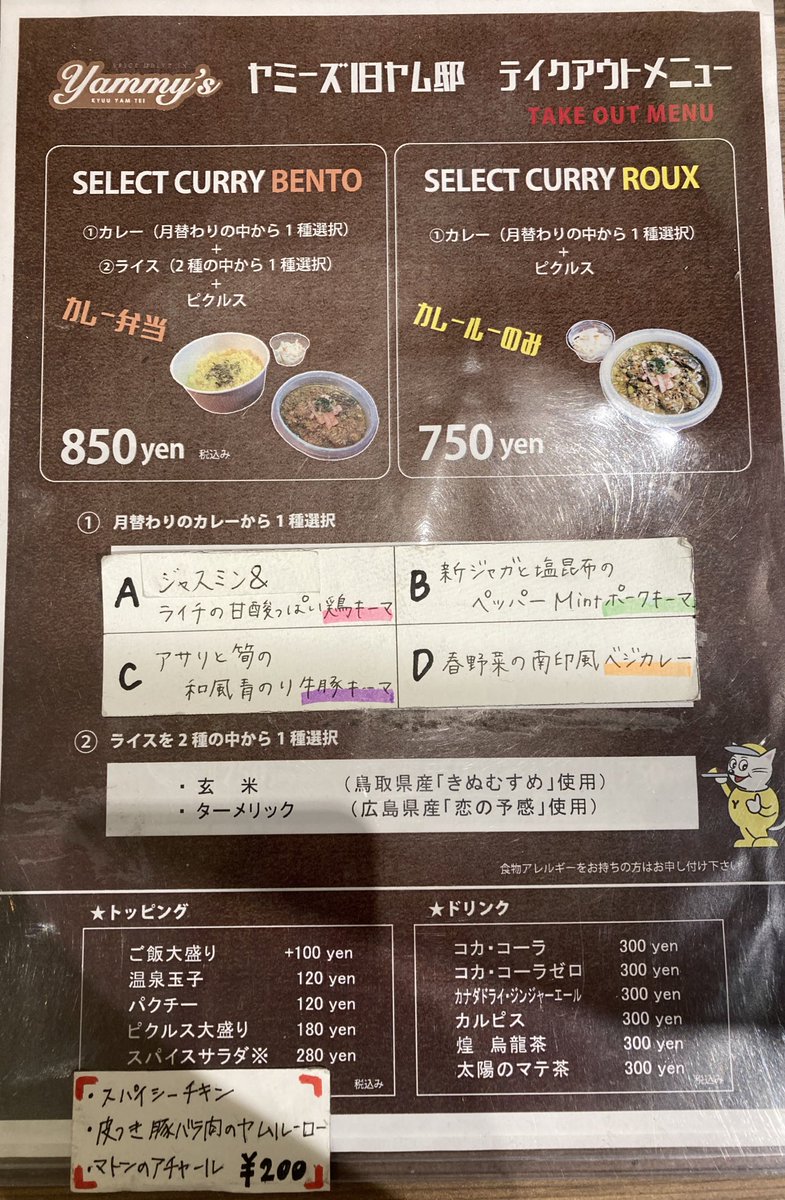 SPICE DRIVE IN
Yammy's
KYUU YAM TEI
ヤミーズ旧ヤム邸 テイクアウトメニュー
TAKE OUT MENU
SELECT CURRY BENTO
①カレー（月替わりの中から１種選択）
+
②ライス（２種の中から１種選択）
+
ピクルス
カレー弁当
850 yen 税込み
SELECT CURRY ROUX
①カレー（月替わりの中から１種選択）
+
ピクルス
カレールーのみ
750 yen
① 月替わりのカレーから１種選択
A ジャスミン&
ライチの甘酸っぱい鶏キーマ
B 新ジャガと塩昆布の
ペッパーMintポークキーマ
C アサリと筍の
和風青のり牛豚キーマ
D 春野菜の南印風ベジカレー
② ライスを２種の中から１種選択
・玄 米 （鳥取県産「きぬむすめ」使用）
・ターメリック （広島県産「恋の予感」使用）
Y
食物アレルギーをお持ちの方はお申し付け下さい
★トッピング
ご飯大盛り +100 yen
温泉玉子 120 yen
パクチー 120 yen
ピクルス大盛り 180 yen
スパイスサラダ※ 280 yen
税込み
・スパイシーチキン
・皮つき豚バラ肉のヤムルーロー
・マトンのアチャール ¥200
★ドリンク
コカ・コーラ 300 yen
コカ・コーラゼロ 300 yen
カナダドライ・ジンジャーエール 300 yen
カルピス 300 yen
煌 烏龍茶 300 yen
太陽のマテ茶 300 yen
税込み